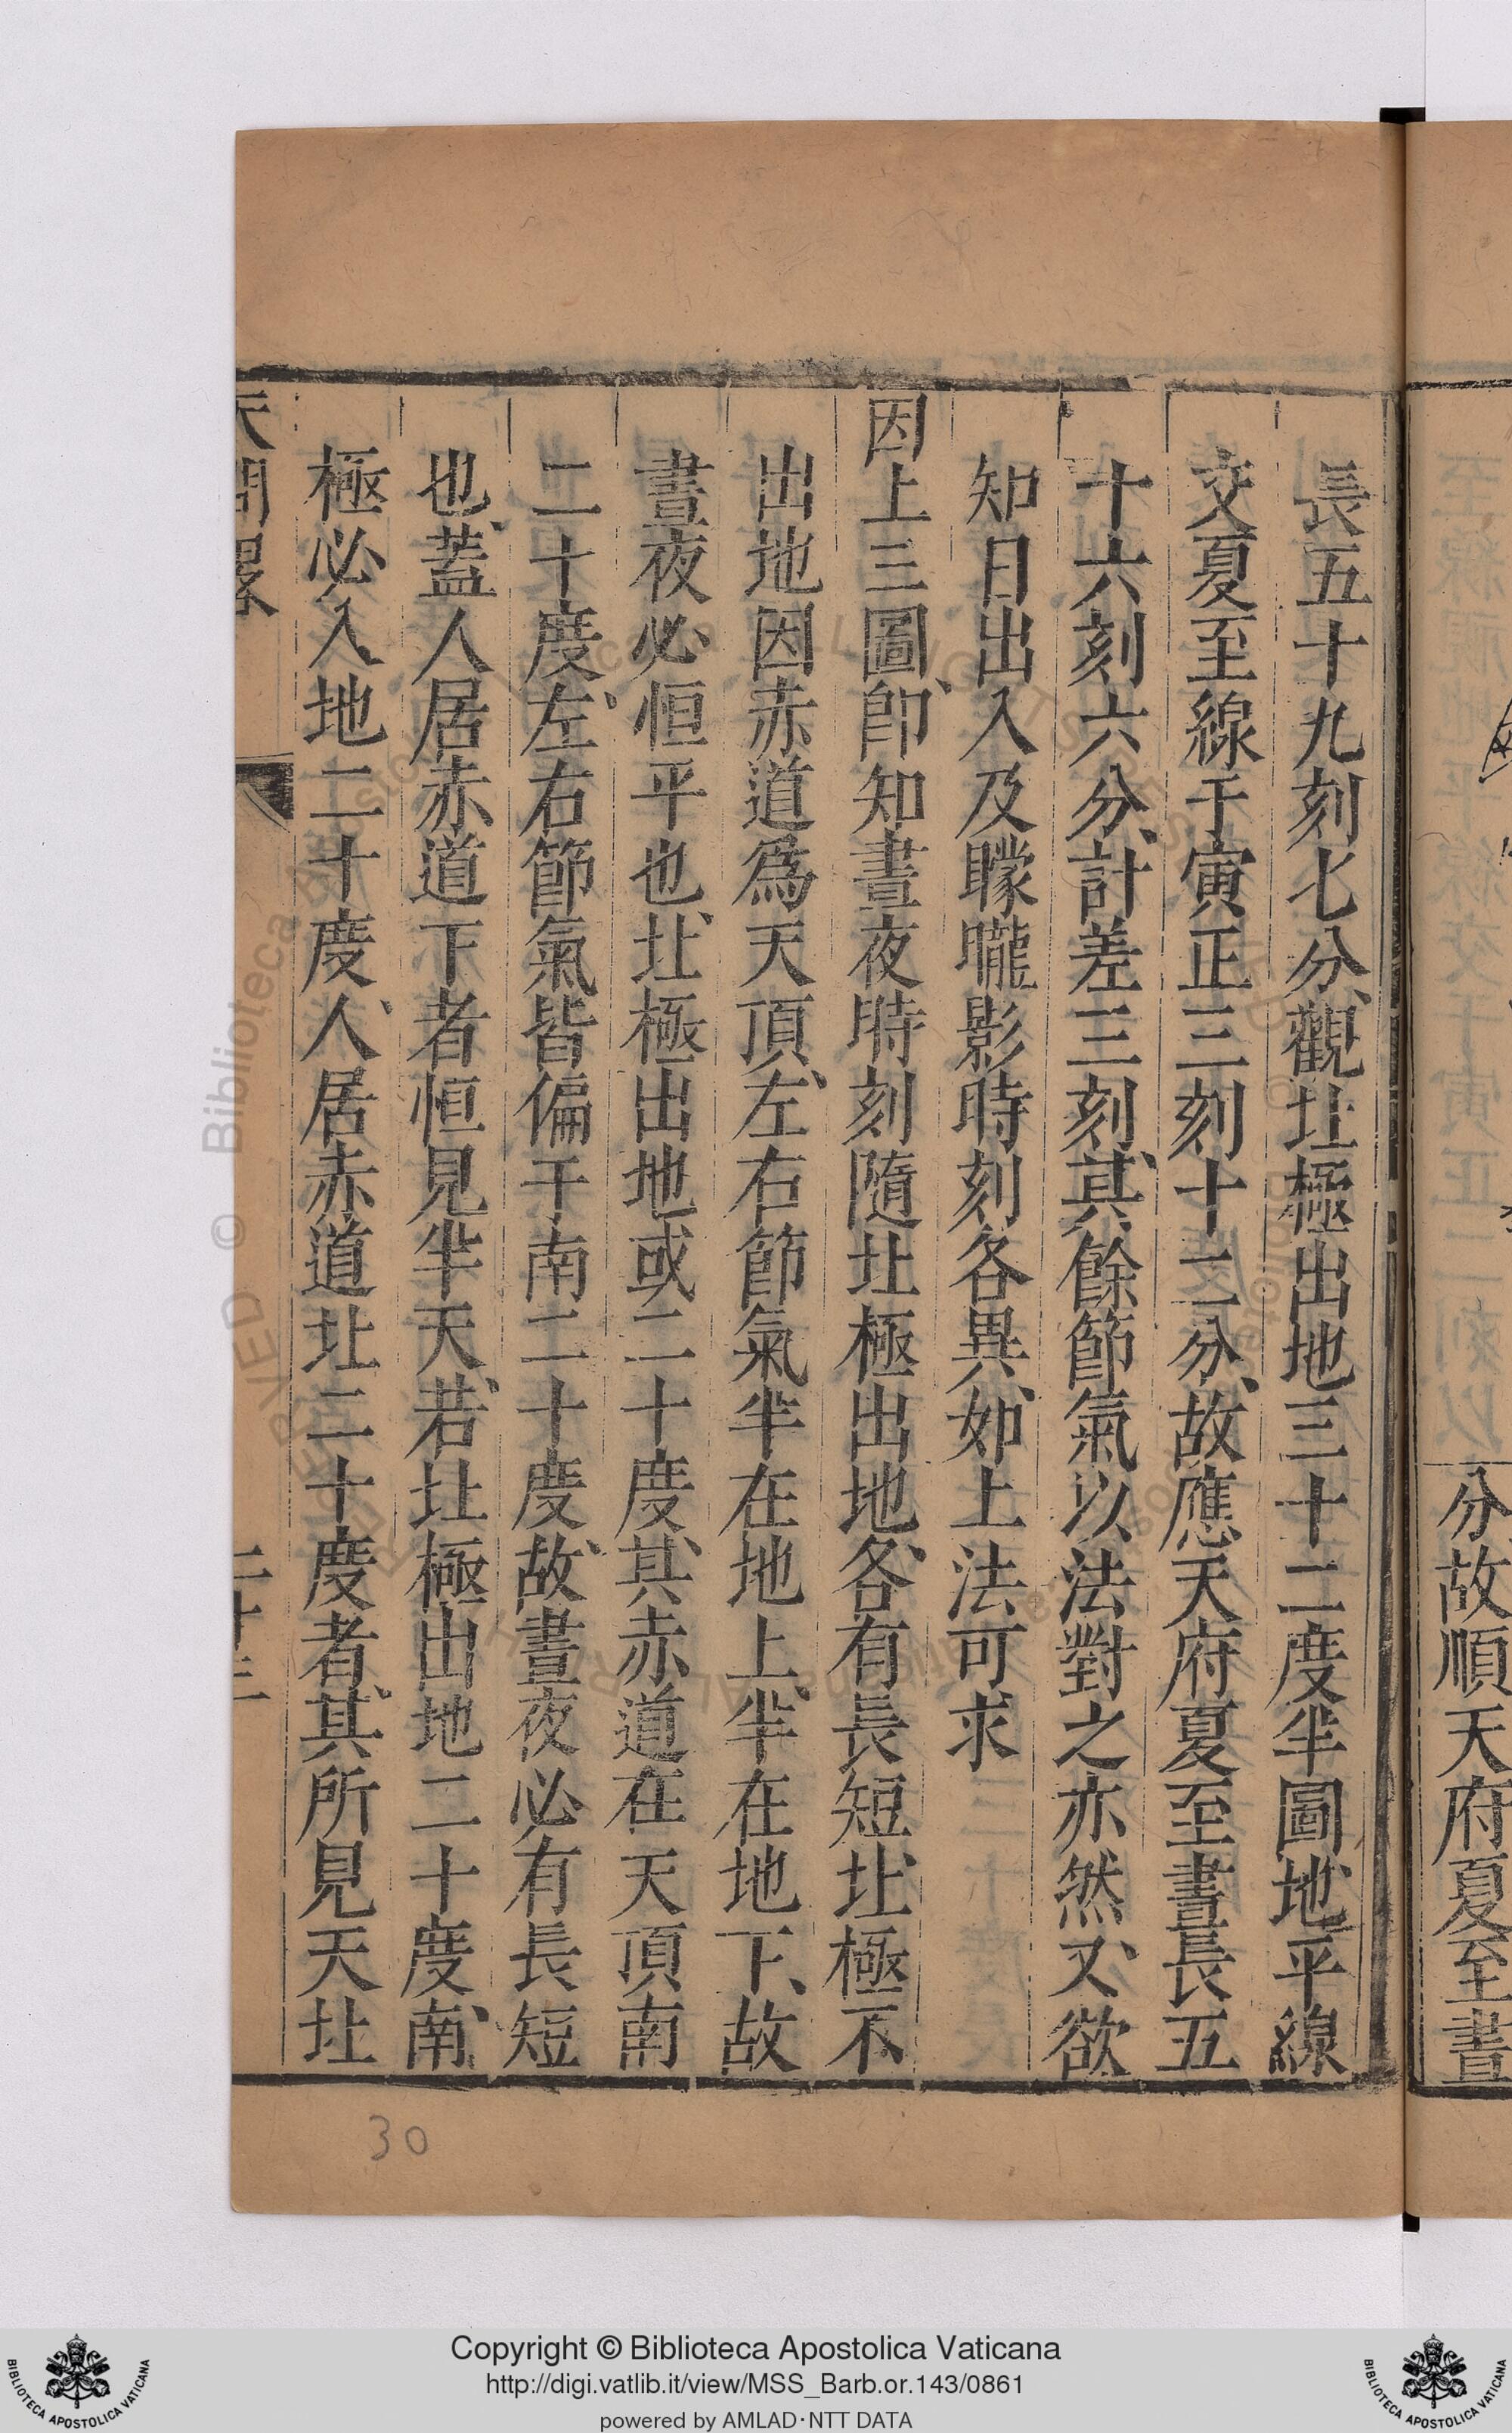 分故順天府夏至晝
長五十九刻七分、觀北極出地三十二度半圖地平線
交夏至線于寅正三刻十二分、故應天府夏至晝長五
十六刻六分、計差三刻、其餘節氣以法對之亦然、又欲
知日出入及矇曨影時刻各異、如上法可求
因上三圖、卽知晝夜時刻隨北極出地、各有長短、北極不
出地因赤道爲天頂、左右節氣半在地上、半在地下、故
晝夜必恒平也、北極出地或二十度、其赤道在天頂南
二十度、左右節氣皆偏于南二十度、故晝夜必有長短
也、蓋人居赤道下者恒見半天、若北極出地二十度、南
極必入地二十度、人居赤道北二十度者、其所見天北
天問畧
二十三
30
© Biblioteca Apostolica Vaticana
Copyright © Biblioteca Apostolica Vaticana
http://digi.vatlib.it/view/MSS_Barb.or.143/0861
powered by AMLAD·NTT DATA
BIBLIOTECA APOSTOLICA VATICANA
BIBLIOTECA APOSTOLICA VATICANA